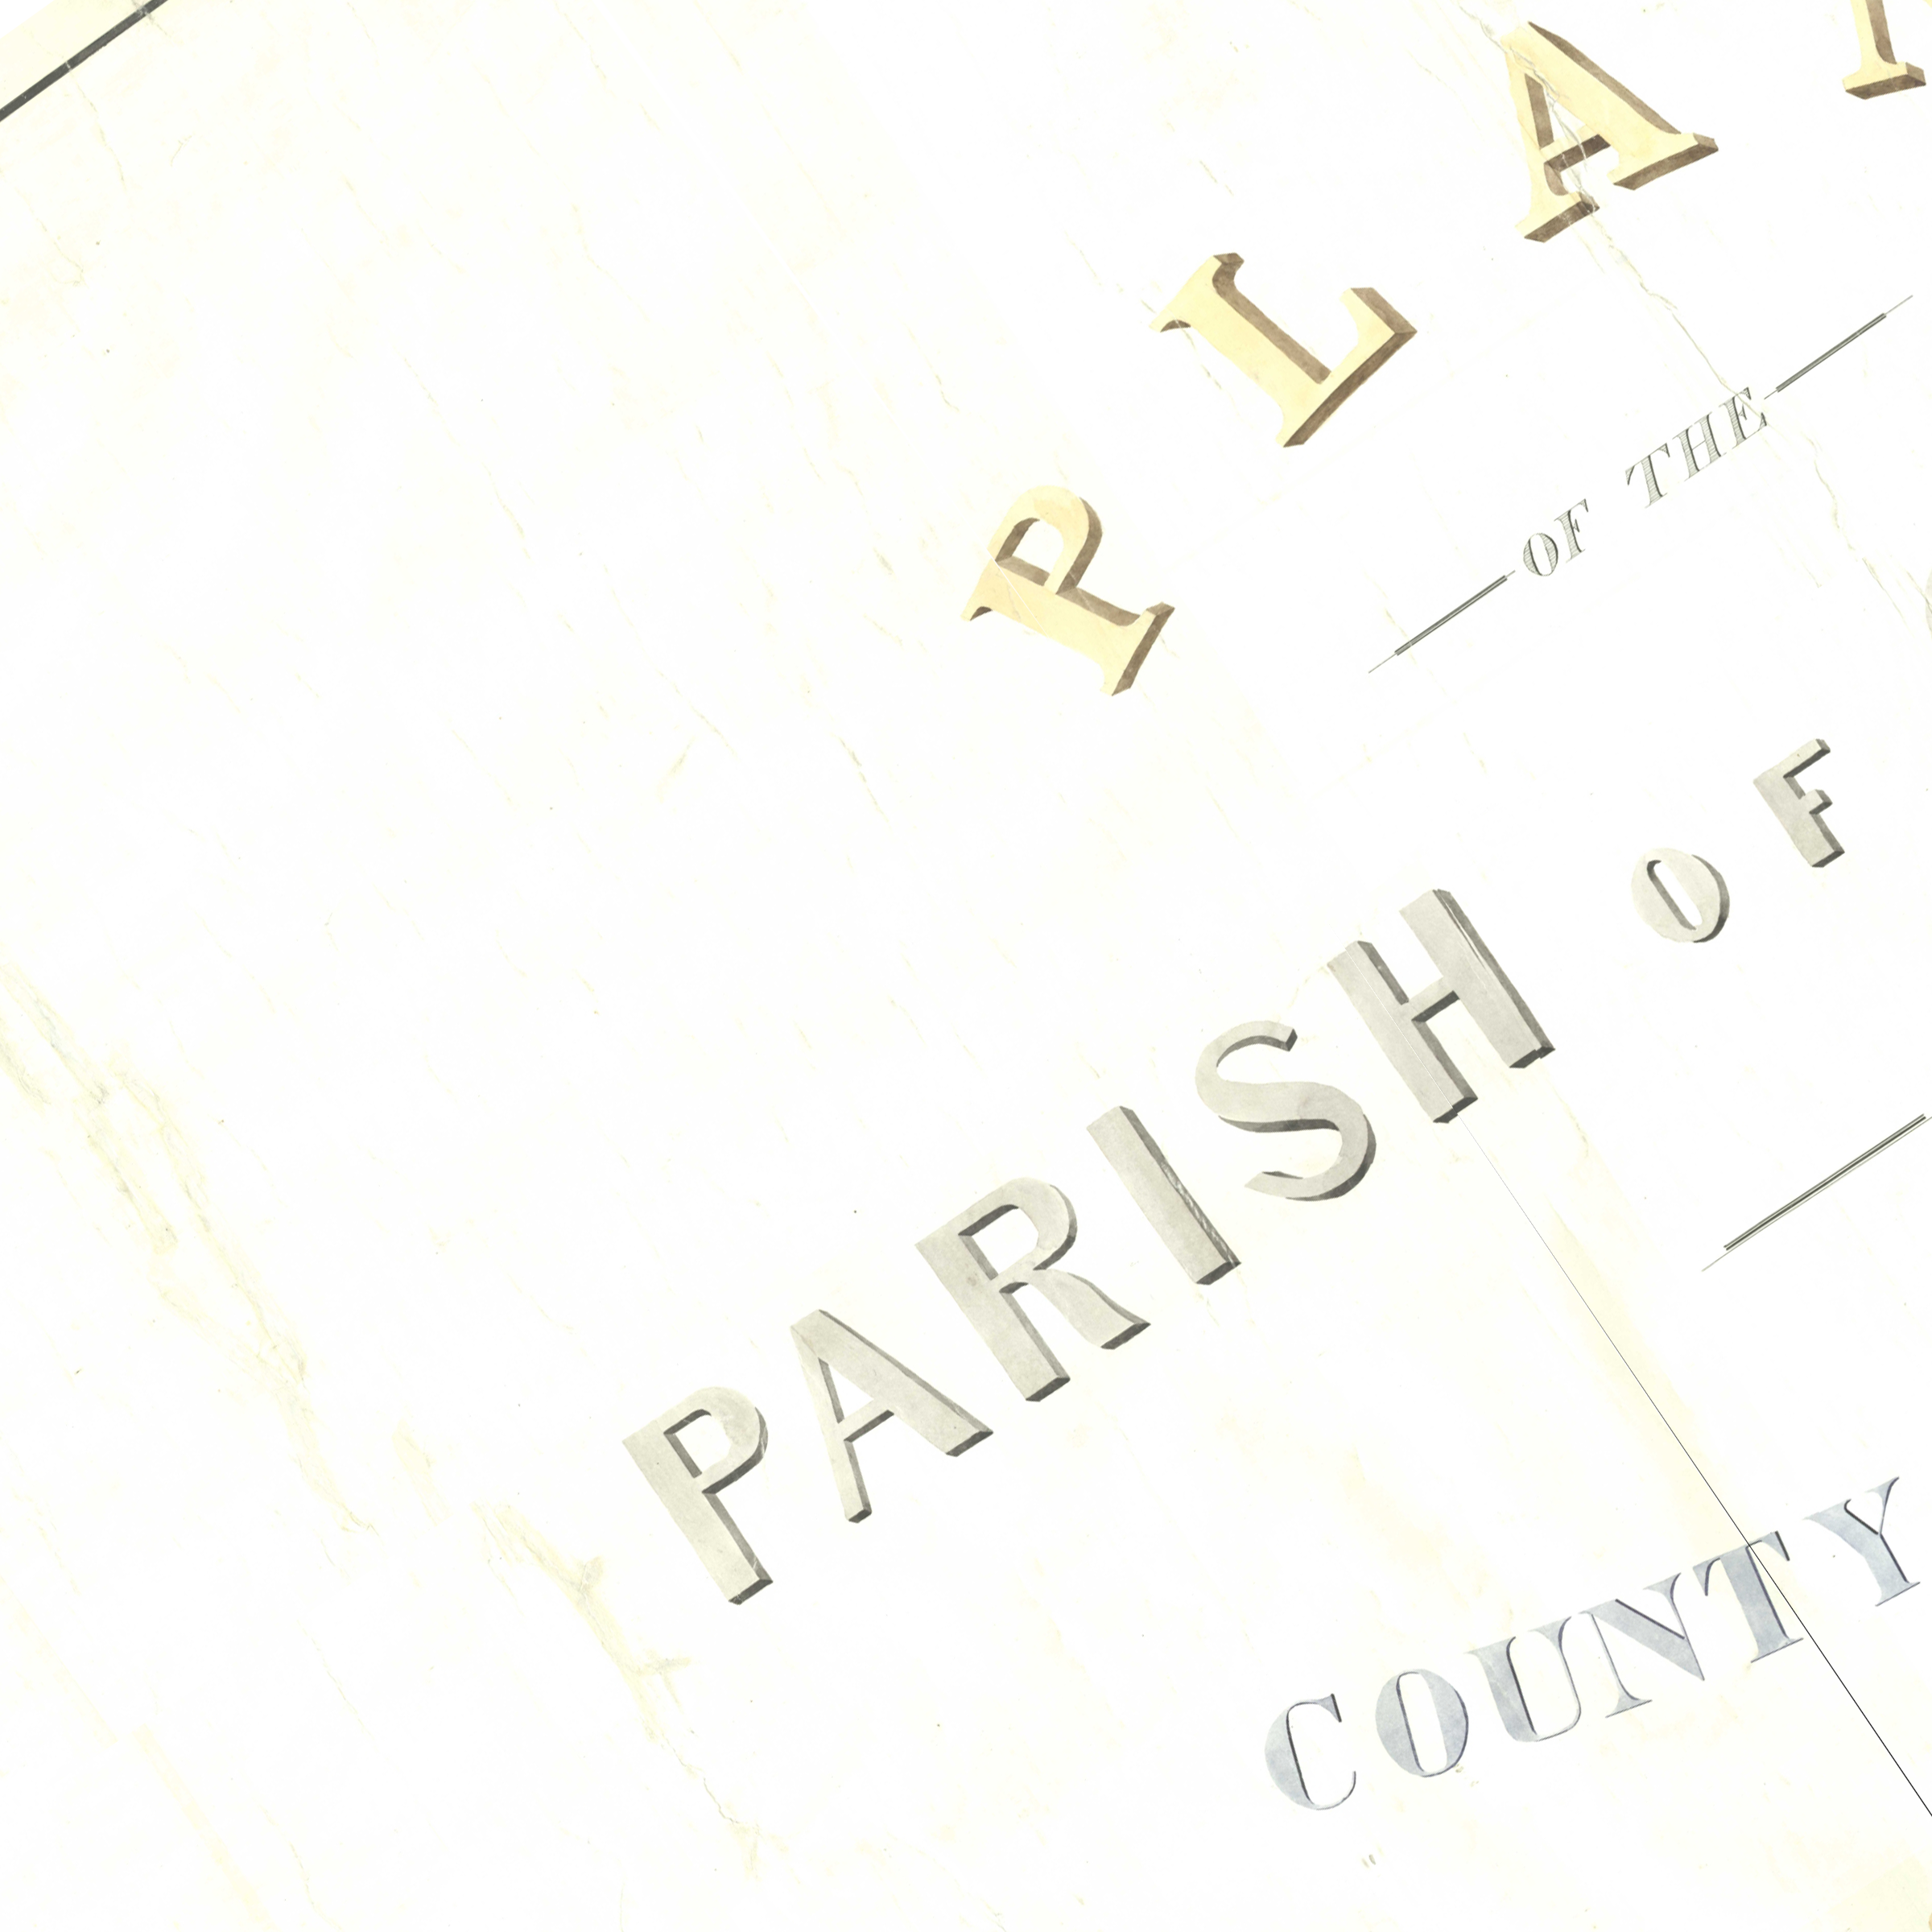 PLA
OF THE
PARISH OF
COUNTY